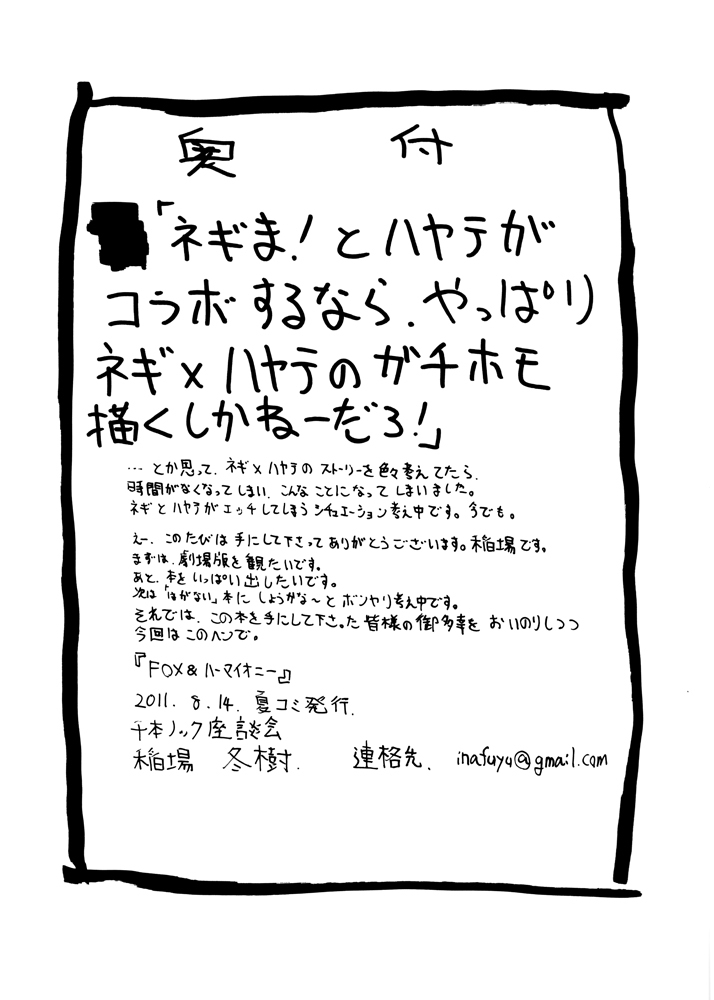 奥付
「ネギま！とハヤテが
コラボするなら、やっぱり
ネギ×ハヤテのガチホモ
描くしかねーだろ！」
…とか思って、ネギ×ハヤテのストーリーを色々考えてたら、
時間がなくなってしまい、こんなことになってしまいました。
ネギとハヤテがエッチしてしまうシチュエーション考え中です。今でも。
えー、このたびは手にして下さってありがとうございます。稲場です。
まずは、劇場版を観たいです。
あと、本をいっぱい出したいです。
次は「はがない」本にしようかな～とボンヤリ考え中です。
それでは、この本を手にして下さった皆様の御多幸をおいのりしつつ
今回はこのヘンで。
『FOX&ハーマイオニー』
2011. 8.14. 夏コミ発行.
千本ノック座談会
稲場 冬樹. 連格先. inafuyu@gmail.com